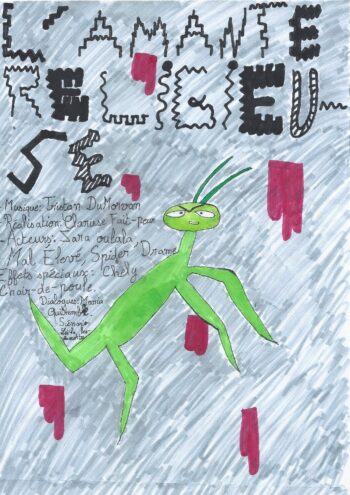 L'AMANTE
RELIGIEU
SE
Musique: Tristan DuMorvan
Réalisation: Clarisse Fait-peur
Acteurs: Sara oulala,
Mal Elevé, Spider Drame
Effets spéciaux: Chély
Chair-de-poule.
Dialogues: